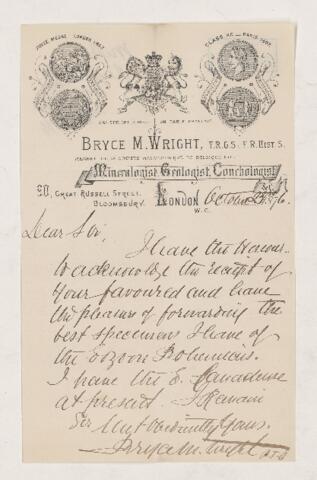 PRIZE MEDAL LONDON 1862
CLASS XL PARIS 1867
BRYCE M. WRIGHT, F.R.G.S. F.R.HIST.S.
Mineralogist Geologist, Conchologist
90, GREAT RUSSELL STREET,
BLOOMSBURY.
LONDON
W.C.
October
Dear Sir,
I have the Honour
to acknowledge the receipt of
your favoured and have
the pleasure of forwarding the
best specimen I have of
the Eozoon Bohemicus.
I have the E. Canadense
at present. I Remain
Sir
Most Obediently Yours.
Bryce M. Wright
P.T.O